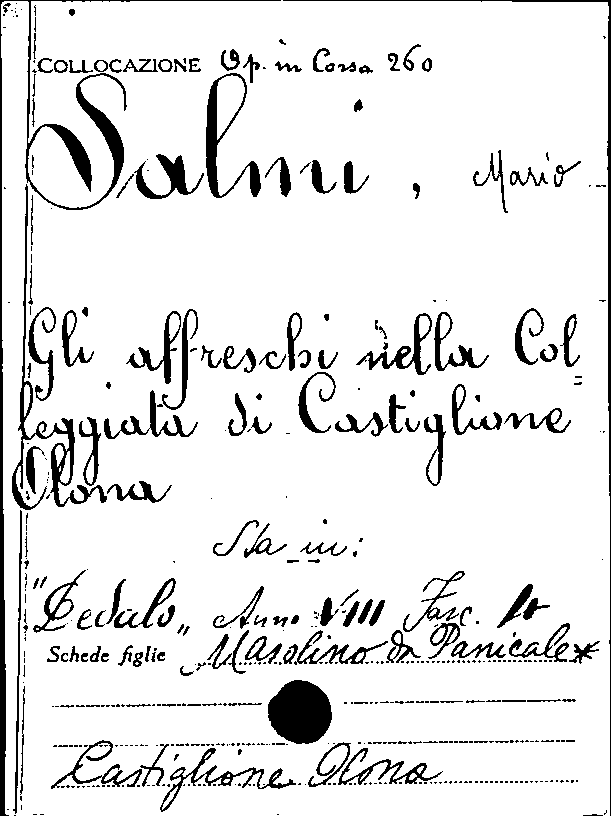 COLLOCAZIONE Op. in Corsa 260
Salmi, Mario
Gli affreschi nella Col=
leggiata di Castiglione
Olona
Sta in:
"Dedalo" Anno VIII Fasc.
Schede figlie Masolino da Panicale*
Castiglione Olona